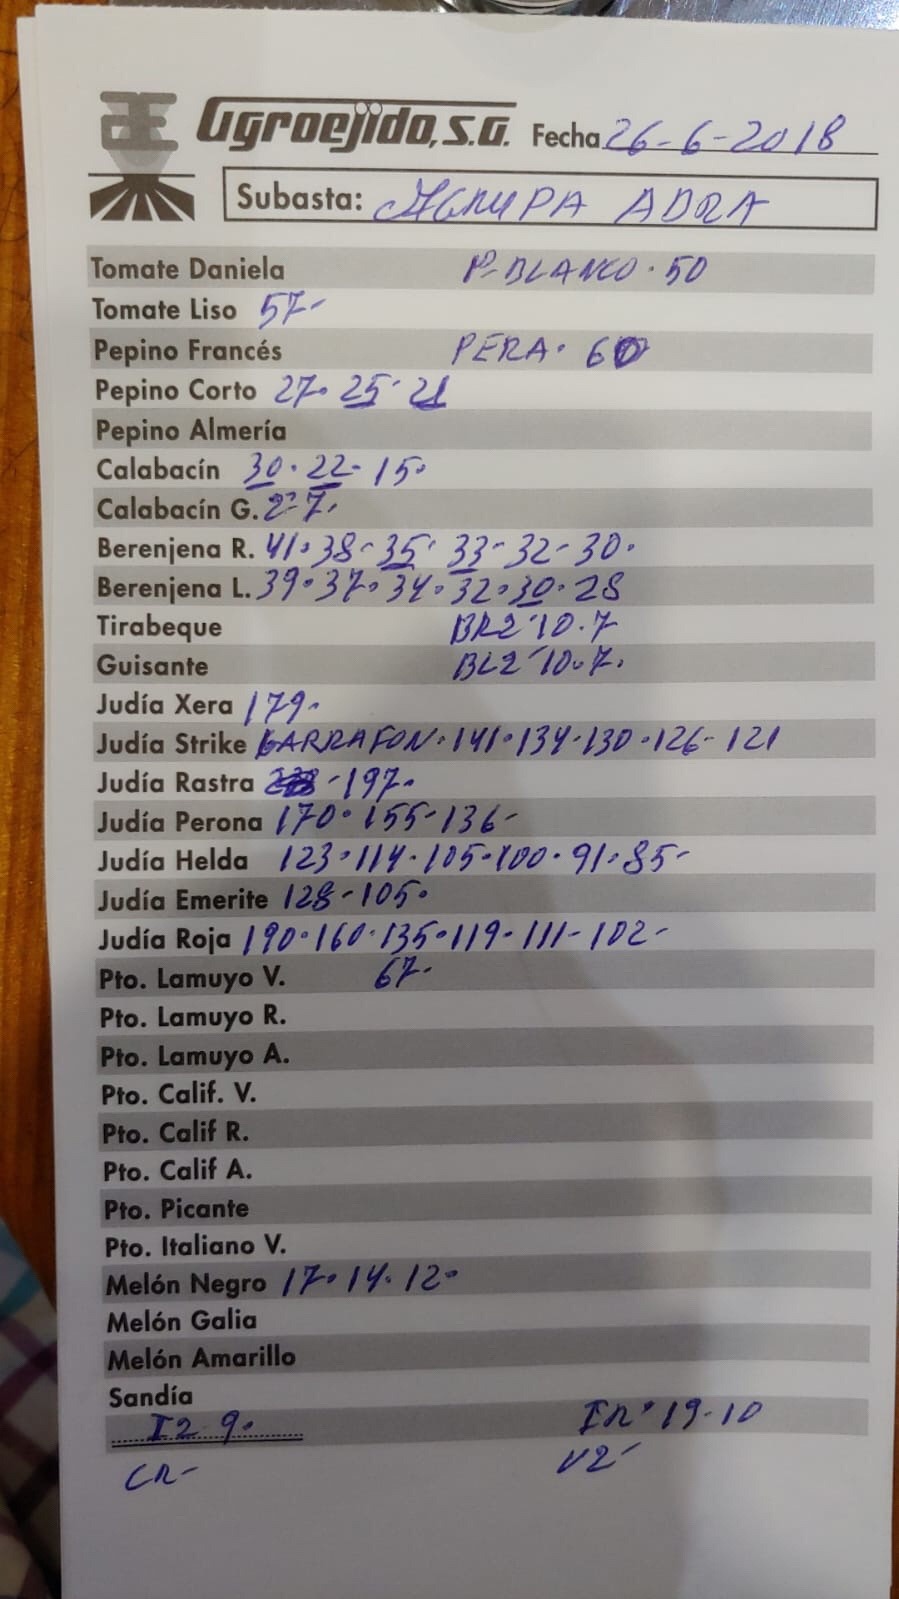 Agroejido, S.A. Fecha 26-6-2018
Subasta: AGRUPA ADRA
Tomate Daniela P-BLANCO. 50
Tomate Liso 57-
Pepino Francés PERA. 60
Pepino Corto 27. 25. 21
Pepino Almería
Calabacín 30. 22- 15.
Calabacín G. 2-7.
Berenjena R. 41. 38- 35. 33- 32- 30.
Berenjena L. 39. 37. 34. 32. 30. 28
Tirabeque BR2-10.7
Guisante BL2-10.7.
Judía Xera 179.
Judía Strike GARRAFON. 141. 134-130.126- 121
Judía Rastra -197.
Judía Perona 170. 155- 136-
Judía Helda 123. 114. 105.100. 91. 85-
Judía Emerite 128-105.
Judía Roja 190.160.135.119-111-102-
Pto. Lamuyo V. 67-
Pto. Lamuyo R.
Pto. Lamuyo A.
Pto. Calif. V.
Pto. Calif R.
Pto. Calif A.
Pto. Picante
Pto. Italiano V.
Melón Negro 17. 14. 12.
Melón Galia
Melón Amarillo
Sandía
I2 9. IR. 19-10
CR- V2-